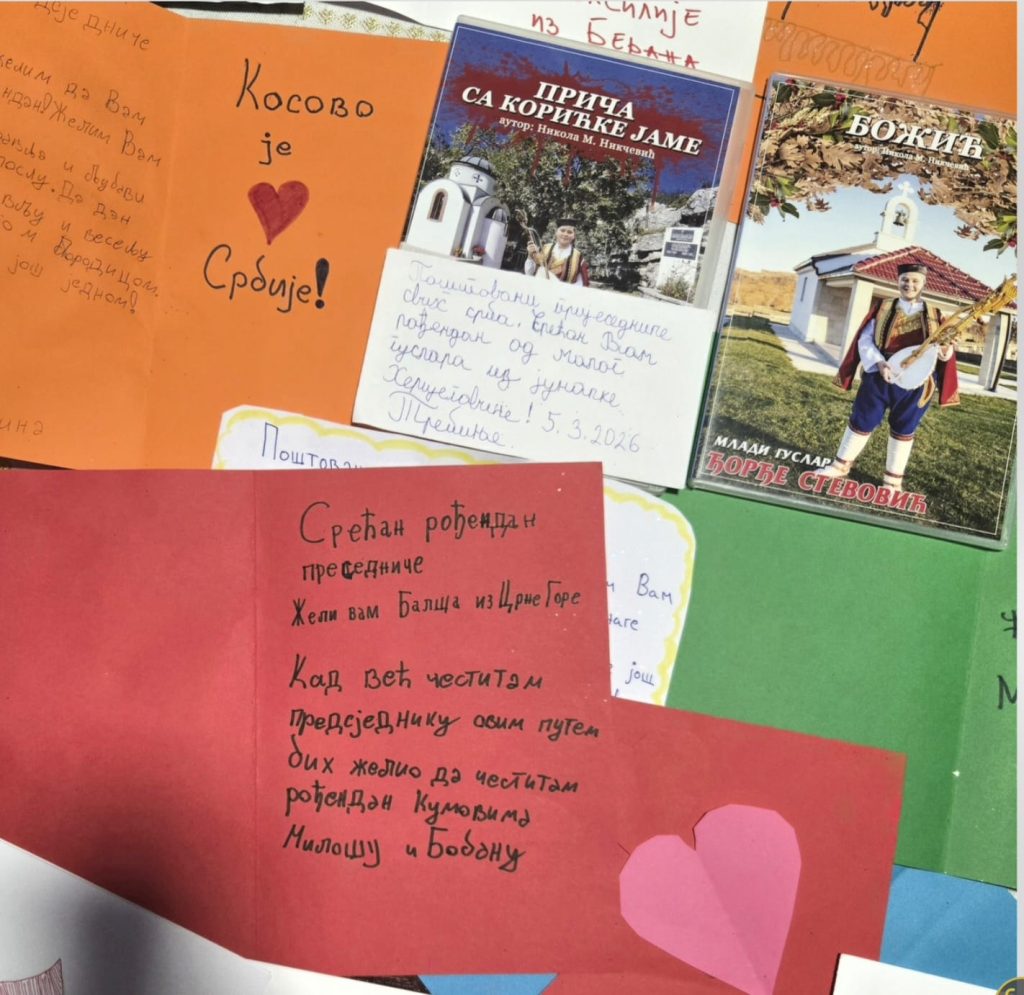 желим да Вам
Желим Вам
и љубави
послу. Да дан
и весељу
породицом.
још једном!
Косово
је
Србије!
ИЗ БЕРАНА
ПРИЧА
СА КОРИЋКЕ ЈАМЕ
аутор: Никола М. Никчевић
Поштовани прцеседниче
свих срба, Срећан Вам
рођендан од малог
гуслара из јуначке
Херцеговине! 5.3.2026
Требиње.
БОЖИЋ
аутор: Никола М. Никчевић
МЛАДИ ГУСЛАР
ЂОРЂЕ СТЕВОВИЋ
Срећан рођендан
преседниче
Жели вам Балша из Црне Горе
Кад већ честитам
предсједнику овим путем
бих желио да честитам
рођендан Кумовима
Милошу и Бобану
Вам
још